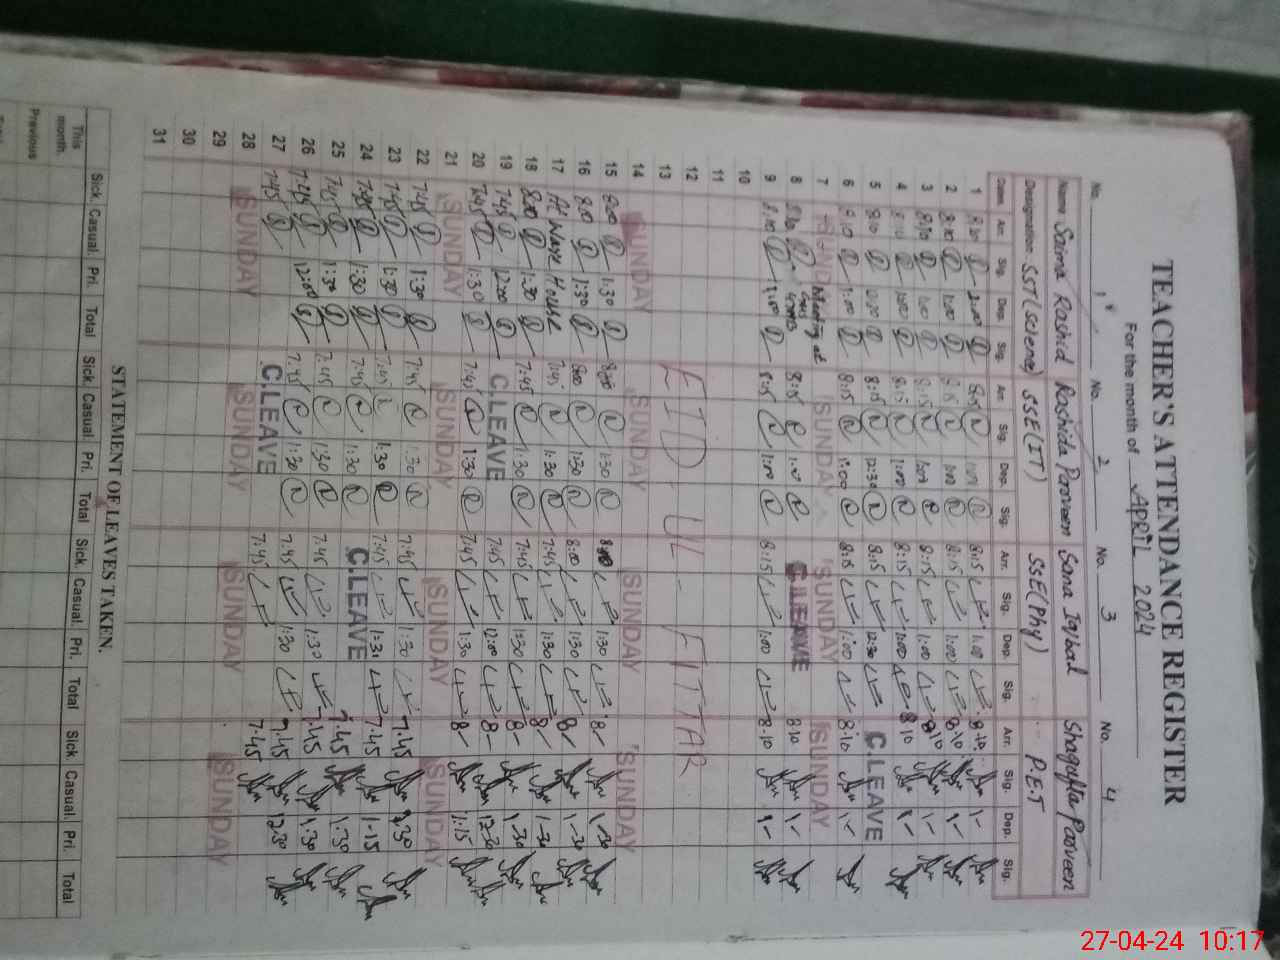 TEACHER'S ATTENDANCE REGISTER
For the month of APRIL 2024
No. 1 No. 2 No. 3 No. 4
Name Saima Rashid Rashida Parveen Sana Iqbal Shagufta Parveen
Designation SST (Sciene) SSE (IT) SSE (Phy) P.E.T
Date Arr. Sig. Dep. Sig. Arr. Sig. Dep. Sig. Arr. Sig. Dep. Sig. Arr. Sig. Dep. Sig.
1 8:10 2:00 8:15 1:00 8:15 1:00 8.10 1-
2 8:10 1:00 8:15 1:00 8:15 1:00 8.10 1-
3 8:10 1:00 8:15 1:00 8:15 1:00 8.10 1-
4 8:10 1:00 8:15 1:00 8:15 1:00 8.10 1-
5 8:10 8:15 12:30 8:15 12:30 C.LEAVE
6 8:10 1:00 8:15 1:00 8:15 1:00 8.10 1-
7 SUNDAY Meeting at SUNDAY SUNDAY SUNDAY
8 8:15 1:00 C.LEAVE 8.10 1-
9 8:10 1:00 8:15 1:00 8:15 1:00 8.10 1-
10
11
12 EID-UL-FITTAR
13
14 SUNDAY SUNDAY SUNDAY SUNDAY
15 8:00 1:30 8:00 1:30 8:00 1:30 8- 1-30
16 8:00 1:30 8:00 1:30 8:00 1:30 8- 1-30
17 At House 7:45 1:30 7:45 1:30 8- 1-30
18 8:00 1:30 7:45 1:30 7:45 1:30 8- 1-30
19 7:45 12:00 C.LEAVE 7:45 12:00 8- 12-30
20 7:45 1:30 7:45 1:30 7:45 1:30 8- 1:15
21 SUNDAY SUNDAY SUNDAY SUNDAY
22 7:45 1:30 7:45 1:30 7:45 1:30 7.45 1.30
23 7:45 1:30 7:45 1:30 7:45 1:31 7.45 1-15
24 7:45 1:30 7:45 1:30 C.LEAVE 7.45 1.30
25 7:45 1:30 7:45 1:30 7.45 1:30 7.45 1.30
26 7:45 12:00 7:45 1:30 7.45 1:30 7.45 12.30
27 7:45 C.LEAVE 7:45 7.45
28 SUNDAY SUNDAY SUNDAY SUNDAY
29
30
31
STATEMENT OF LEAVES TAKEN.
Sick. Casual. Pri. Total Sick. Casual Pri. Total Sick. Casual. Pri. Total Sick. Casual. Pri. Total
This month.
Previous
27-04-24 10:17